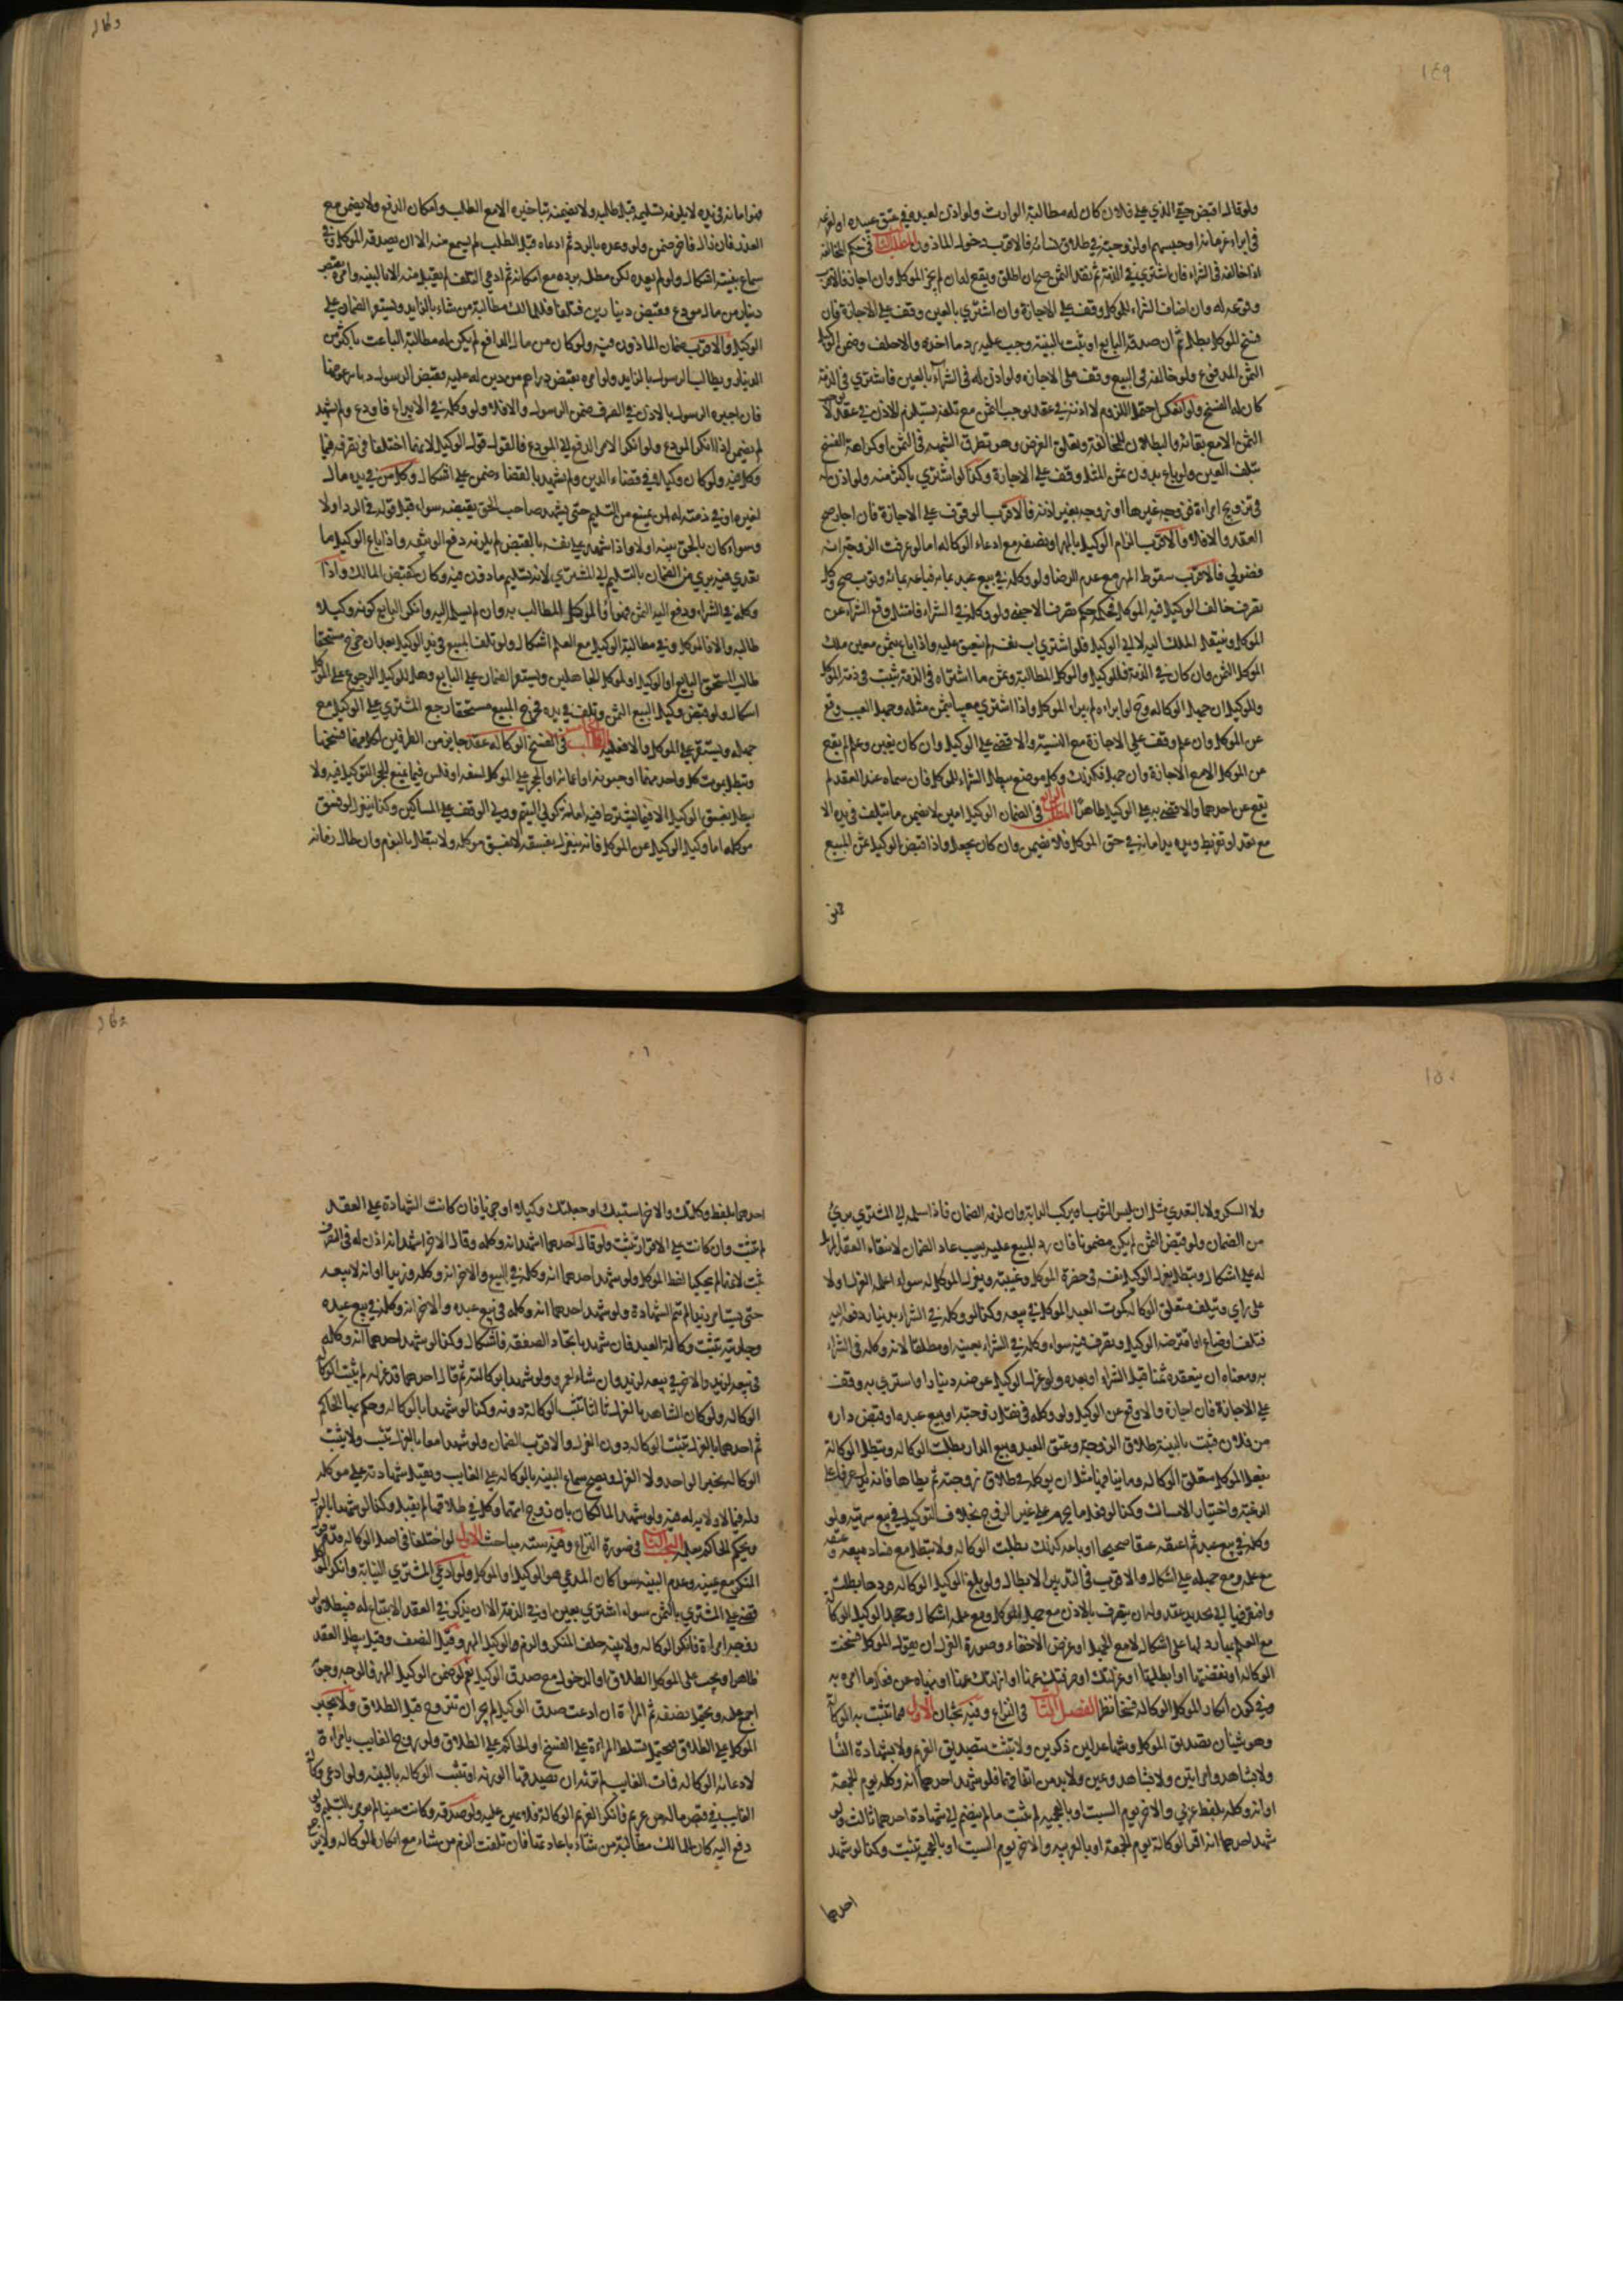 ١٤٩
ولو قال اقبض حقي الذي على فلان كان له مطالبة الوارث ولو اذن لعبده في عتق عبيده او لغريمه
في ابراء غرمائه او حبسهم او لزوجته في طلاق نسائه فالاقرب دخول الماذون المطلب الثالث في حكم المخالفة
اذا خالف في الشراء فان اشترى في الذمة ثم نقد الثمن صح ان اطلق ويقع له ان لم يجز الموكل وان اجاز فالاقرب
وقوعه له وان اضاف الشراء للموكل وقف على الاجازة وان اشترى بالعين وقف على الاجازة فان
فسخ الموكل بطل ثم ان صدقه البايع او ثبت بالبينة وجب عليه رد ما اخذه والا حلف وضمن الوكيل
الثمن المدفوع ولو خالف في البيع وقف على الاجازة ولو اذن له في الشراء بالعين فاشترى في الذمة
كان له الفسخ ولو انعكس احتمل اللزوم لانه اذنه في عقد يوجب الثمن مع تلفه يستلزم الاذن في عقد لا
الثمن الا مع بقائه والبطلان للمخالفة وتعلق الغرض وهو تطرق الشبهة في الثمن او كراهة الفسخ
بتلف العين ولو باع بدون ثمن المثل وقف على الاجازة وكذا لو اشترى باكثر منه ولو اذن له
في تزويج امراة فزوجه غيرها او زوجه بغير اذنه فالاقرب الوقوف على الاجازة فان اجاز صح
العقد والا فلا والاقرب الزام الوكيل بالمهر او نصفه مع ادعاء الوكالة اما لو عرفت الزوجة انه
فضولي فالاقرب سقوط المهر مع عدم الرضا ولو وكله في بيع عبد بمائة فباعه بمائة وثوب صح وكل
تصرف خالف الوكيل فيه الموكل فحكمه حكم تصرف الاجنبي ولو وكله في الشراء فامتثل وقع الشراء عن
الموكل وينتقل الملك اليه لا الى الوكيل فلو اشترى اب نفسه لم ينعتق عليه واذا باع بثمن معين ملك
الموكل الثمن وان كان في الذمة فللوكيل والموكل المطالبة وثمن ما اشتراه في الذمة يثبت في ذمة الموكل
وللوكيل ان جهل الوكالة وح لو ابراه لم يبرا الموكل واذا اشترى معيبا بثمن مثله وجهل العيب وقع
عن الموكل وان علم وقف على الاجازة مع النسبة والا قضي على الوكيل وان كان بغبن وعلم لم يقع
عن الموكل الا مع الاجازة وان جهل فكذلك وكل موضع يبطل الشراء للموكل فان سماه عند العقد لم
يقع عن احدهما والا قضي به على الوكيل ظاهرا المطلب الرابع في الضمان الوكيل امين لا يضمن ما يتلف في يده الا
مع تعد او تفريط ويده يد امانة في حق الموكل فلا يضمن وان كان بجعل واذا قبض الوكيل ثمن المبيع
فهو امانة في يده لا يلزمه تسليمه قبل طلبه ولا يضمنه بتاخيره الا مع الطلب وامكان الدفع ولا يضمن مع
العذر فان زال فاخر ضمن ولو وعده بالرد ثم ادعاه قبل الطلب لم يسمع منه الا ان يصدقه الموكل وفي
سماع بينته اشكال ولو لم يعده لكن مطله برده مع امكانه ثم ادعى التلف لم يقبل منه الا بالبينة ولو امره بقبض
دينار من مال مودع فقبض دينارين فتلفا فللمالك مطالبة من شاء بالزايد ويستقر الضمان على
الوكيل والاقرب ضمان الماذون فيه ولو كان من مال الدافع لم يكن له مطالبة الباعث باكثر من
الدينار ويطالب الرسول بالزايد ولو امره بقبض دراهم من دين له عليه فقبض الرسول دنانير عوضها
فان اخبره الرسول بالاذن في الصرف ضمن الرسول والا فلا ولو وكله في الايداع فاودع ولم يشهد
لم يضمن اذا انكر المودع ولو انكر الامر الدفع الى المودع فالقول قول الوكيل لانهما اختلفا في تصرفه فيما
وكل فيه ولو كان وكيلا في قضاء الدين ولم يشهد بالقضا ضمن على اشكال وكل من في يده مال
لغيره او في ذمته له ان يمتنع من التسليم حتى يشهد صاحب الحق بقبضه سواء قبل قوله في الرد او لا
وسواء كان بالحق بينة او لا واذا شهد على نفسه بالقبض لم يلزمه دفع الوثيقة واذا باع الوكيل ما
تعدى فيه بري من الضمان بالتسليم الى المشتري لانه تسليم ماذون فيه وكان كقبض المالك واذا
وكله في الشراء ودفع اليه الثمن فهو او الموكل المطالب به وان لم يسلم اليه وانكر البايع كونه وكيلا
طالبه والا فالموكل وفي مطالبة الوكيل مع العلم اشكال ولو تلف المبيع في يد الوكيل بعد ان خرج مستحقا
طالب المستحق البايع او الوكيل او الموكل الجاهلين ويستقر الضمان على البايع وهل للوكيل الرجوع على الموكل
اشكال ولو قبض وكيل البيع الثمن وتلف في يده فخرج المبيع مستحقا رجع المشتري على الوكيل مع
جهله ويستقر على الموكل والا فعليه المطلب الخامس في الفسخ الوكالة عقد جايز من الطرفين لكل منهما فسخها
وتبطل بموت كل واحد منهما او جنونه او اغمائه او الحجر على الموكل لسفه او فلس فيما يمنع الحجر التوكيل فيه ولا
تبطل بفسق الوكيل الا فيما يشترط فيه امانته كولي اليتيم وولي الوقف على المساكين وكذا ينعزل لو فسق
موكله اما وكيل الوكيل عن الموكل فانه ينعزل بفسقه لا بفسق موكله ولا تبطل بالنوم وان طال زمانه
١٥٠
ولا السكر ولا بالتعدي مثل ان يلبس الثوب او يركب الدابة وان لزمه الضمان فاذا سلمه الى المشتري بري
من الضمان ولو قبض الثمن لم يكن مضمونا فان رد المبيع عليه بعيب عاد الضمان لانتفاء العقد المزيل
له على اشكال وتبطل بعزل الوكيل نفسه في حضرة الموكل وغيبته وبعزل الموكل له سواء اعلمه العزل او لا
على راي وبتلف متعلق الوكالة كموت العبد الموكل في بيعه وكذا لو وكله في الشراء بدينار دفعه اليه
فتلف او ضاع او اقترضه الوكيل وتصرف فيه سواء وكله في الشراء بعينه او مطلقا لانه وكله في الشراء
به ومعناه ان ينقده ثمنا قبل الشراء او بعده ولو عزل الوكيل عوضه دينارا واشترى به وقف
على الاجازة فان اجازه والا وقع عن الوكيل ولو وكله في نقل زوجته او بيع عبده او قبض داره
من فلان فثبت بالبينة طلاق الزوجة وعتق العبد وبيع الدار بطلت الوكالة وتبطل الوكالة
بفعل الموكل متعلق الوكالة وما ينافيها مثل ان يوكله في طلاق زوجته ثم يطاها فانه يدل عرفا على
الرغبة واختيار الامساك وكذا لو فعل ما يحرم على غير الزوج بخلاف التوكيل في بيع سريته ولو
وكله في بيع عبد ثم اعتقه عتقا صحيحا او باعه كذلك بطلت الوكالة ولا تبطل مع فساد بيعه وعتقه
مع علمه ومع جهله على اشكال والاقرب في التدبير الابطال ولو بلغ الوكيل الوكالة فردها بطلت
وافتقر فيها الى تجديد عقد وله ان يتصرف بالاذن مع جهل الموكل ومع علمه اشكال وجحد الوكيل الوكالة
مع العلم بها رد لها على اشكال لا مع الجهل او غرض الاخفاء وصورة العزل ان يقول الموكل فسخت
الوكالة او نقضتها او ابطلتها او عزلتك او صرفتك عنها او ازلتك عنها او ينهاه عن فعل ما امره به
وفي كون انكار الموكل الوكالة فسخا نظر الفصل الثاني في النزاع وفيه بحثان الاول فيما تثبت به الوكالة
وهو شيئان تصديق الموكل وشهادة عدلين ذكرين ولا تثبت بتصديق الغريم ولا بشهادة النساء
ولا بشاهد وامراتين ولا بشاهد ويمين ولا بد من اتفاقهما فلو شهد احدهما انه وكله يوم الجمعة
او انه وكله بلفظ عربي والاخر يوم السبت او بالعجمية لم تثبت ما لم ينضم الى شهادة احدهما ثالث ولو
شهد احدهما انه اقر بالوكالة يوم الجمعة او بالعربية والاخر يوم السبت او بالعجمية تثبت وكذا لو شهد
احدهما
احدهما بلفظ وكلتك والاخر استنبتك او جعلتك وكيلا او جريا فان كانت الشهادة على العقد
لم تثبت وان كانت على الاقرار تثبت ولو قال احدهما اشهد انه وكله وقال الاخر اشهد انه اذن له في التصرف
تثبت لانهما لم يحكيا لفظ الموكل ولو شهد احدهما انه وكله في البيع والاخر انه وكله وزيدا او انه لا يبيعه
حتى يستامر زيدا لم تتم الشهادة ولو شهد احدهما انه وكله في بيع عبده والاخر انه وكله في بيع عبده
وجاريته تثبت وكالة العبد فان شهد باتحاد الصفقة فاشكال وكذا لو شهد احدهما انه وكله
في بيعه لزيد والاخر في بيعه لزيد وان شاء لعمرو ولو شهدا بوكالته ثم قال احدهما قد عزله لم تثبت الوكالة
الوكالة ولو كان الشاهد بالعزل ثالثا تثبت الوكالة دونه وكذا لو شهدا بالوكالة وحكم بها الحاكم
ثم احدهما بالعزل تثبت الوكالة دون العزل والاقرب الضمان ولو شهدا معا بالعزل تثبت ولا يثبت
الوكالة بخبر الواحد ولا العزل ويصح سماع البينة بالوكالة على الغايب وتقبل شهادته على موكله
وله فيما لا ولاية له فيه ولو شهد المالكان بان زوج امتهما وكله في طلاقها لم يقبل وكذا لو شهدا بالعزل
ويحكم الحاكم بعلمه البحث الثاني في صورة النزاع وفيه ستة مباحث الاول لو اختلفا في اصل الوكالة قدم قول
المنكر مع يمينه وعدم البينة سواء كان المدعي هو الوكيل او الموكل ولو ادعى المشتري النيابة وانكر الموكل
قضي على المشتري بالثمن سواء اشترى بعين او في الذمة الا ان يذكر في العقد الابتياع له فيبطل ولو
زوجه امراة فانكر الوكالة ولا بينة حلف المنكر والزم الوكيل المهر وقيل النصف وقيل يبطل العقد
ظاهرا ويجب على الموكل الطلاق او الدخول مع صدق الوكيل نعم لو ضمن الوكيل المهر فالوجه وجوب
اجمع عليه ويحتمل نصفه ثم المراة ان ادعت صدق الوكيل لم يجز ان تتزوج قبل الطلاق ولا يجبر
الموكل على الطلاق فيحتمل تسلط المراة على الفسخ او الحاكم على الطلاق ولو زوج الغايب بامراة
لادعائه الوكالة فمات الغايب لم ترثه الا ان يصدقها الورثة او تثبت الوكالة بالبينة ولو ادعى وكالة
الغايب في قبض ماله من غريم فانكر الغريم الوكالة فلا يمين عليه ولو صدقه وكانت عينا لم يؤمر بالتسليم ولو
دفع اليه كان للمالك مطالبة من شاء باعادتها فان تلفت الزم من شاء مع انكاره الوكالة ولا يرجع